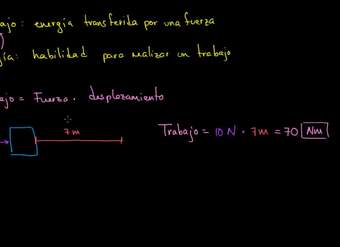 ajo: energía transferida por una fuerza
gía: habilidad para realizar un trabajo
ajo = Fuerza · desplazamiento
7 m
Trabajo = 10 N · 7 m = 70 Nm